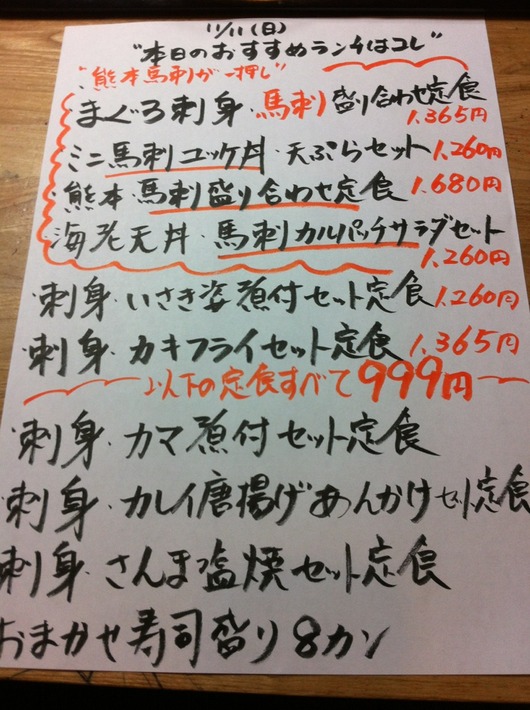 11/11(日)
"本日のおすすめランチはコレ"
"熊本馬刺が一押し"
まぐろ刺身・馬刺盛り合わせ定食
1.365円
ミニ馬刺ユッケ丼・天ぷらセット 1,260円
熊本馬刺盛り合わせ定食 1.680円
海老天丼・馬刺カルパッチサラダセット
1,260円
刺身・いさき姿煮付セット定食 1,260円
刺身・カキフライセット定食 1,365円
以下の定食すべて999円
刺身・カマ煮付セット定食
刺身・カレイ唐揚げあんかけセット定食
刺身・さんま塩焼セット定食
おまかせ寿司盛り8カン